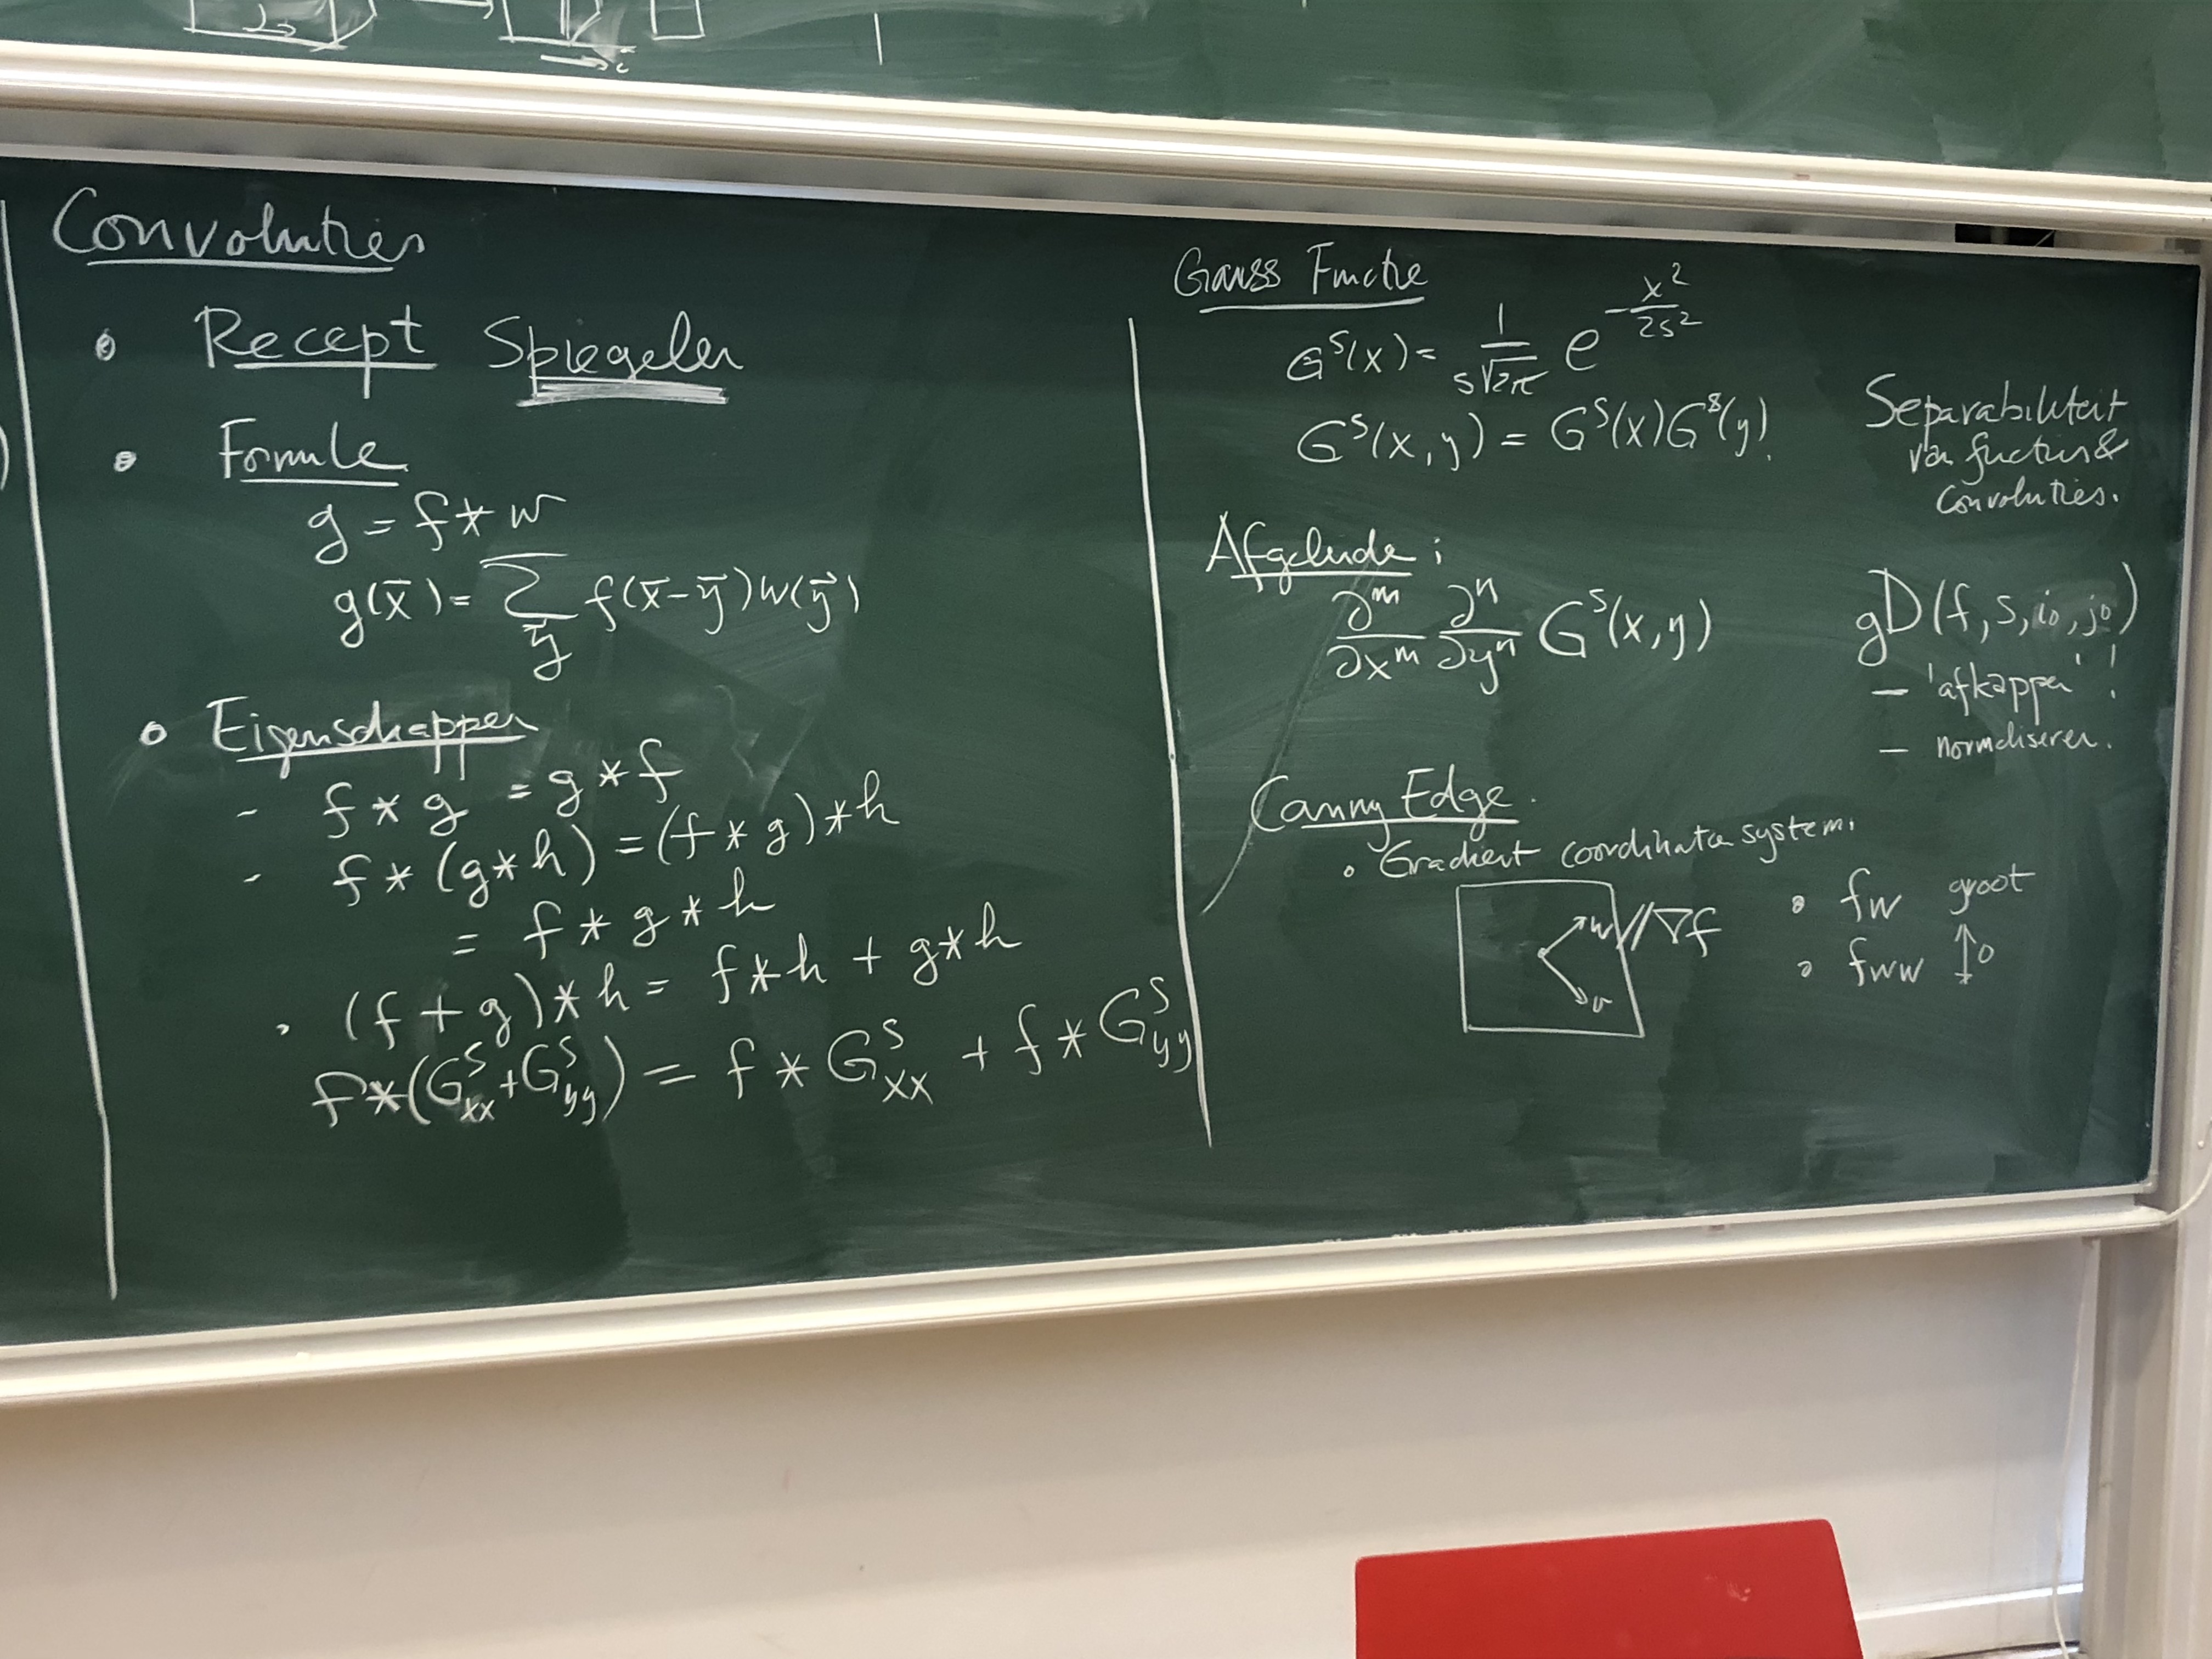 Convoluties
• Recept Spiegelen
• Formule
g = f * w
g(x̄) = ∑ f(x̄-ȳ)w(ȳ)
ȳ
• Eigenschappen
- f * g = g * f
- f * (g * h) = (f * g) * h
= f * g * h
• (f + g) * h = f * h + g * h
f * (Gˢxx + Gˢyy) = f * Gˢxx + f * Gˢyy
Gauss Functie
Gˢ(x) = 1/(s√2π) e^(-x²/2s²)
Gˢ(x,y) = Gˢ(x)Gˢ(y)!
Separabiliteit
van functies &
Convoluties.
Afgeleide:
∂ᵐ/∂xᵐ ∂ⁿ/∂yⁿ Gˢ(x,y)
gD(f,s,io,jo)
- 'afkappen'!
- normaliseren.
Canny Edge.
• Gradient coordinaten system.
w // ∇f
v
• fw groot
• fww ↕0